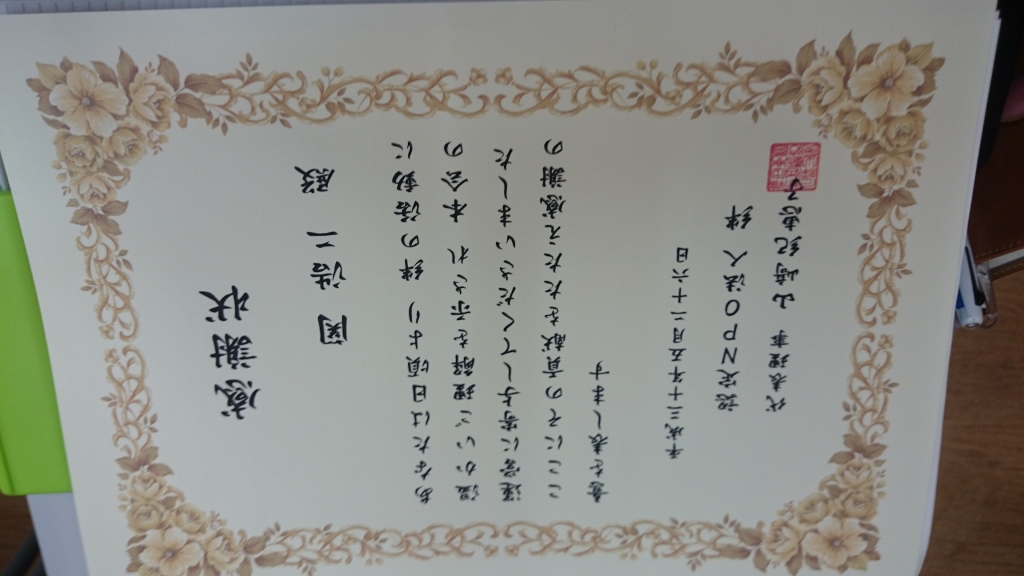 感謝状
関 浩二 殿
あなたは日頃より 絆の活動に
温かいご理解を示され 本会の
運営に寄与してくださいました
ここにその貢献をたたえ感謝の
意を表します
平成三十年五月二十六日
認定NPO法人 絆
代表理事 山﨑紀恵子